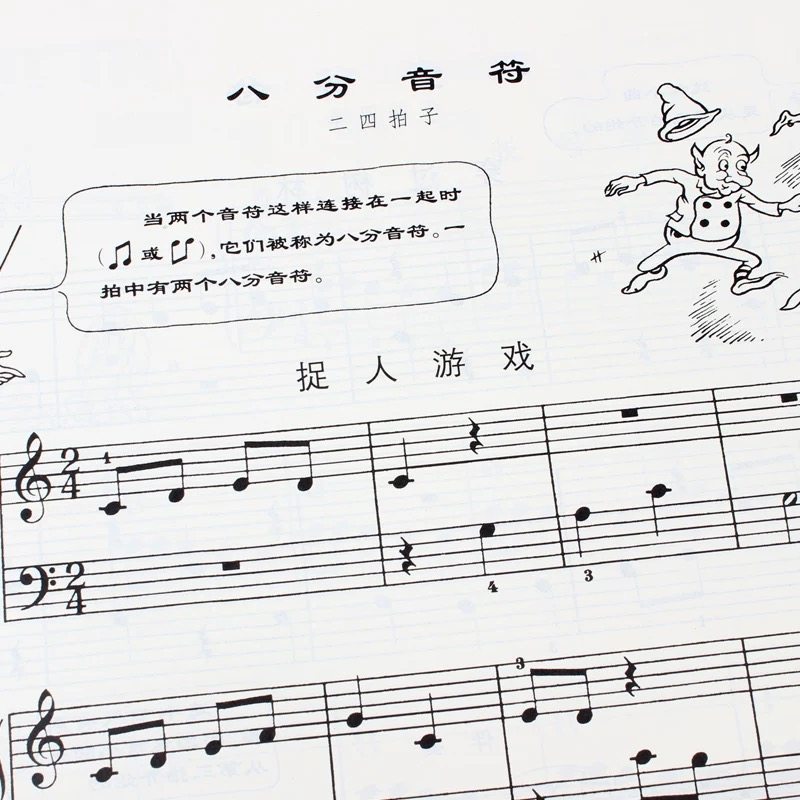 八分音符
二四拍子
当两个音符这样连接在一起时
(♫或♫),它们被称为八分音符。一
拍中有两个八分音符。
捉人游戏
1
2
4
2
4
4
3
3